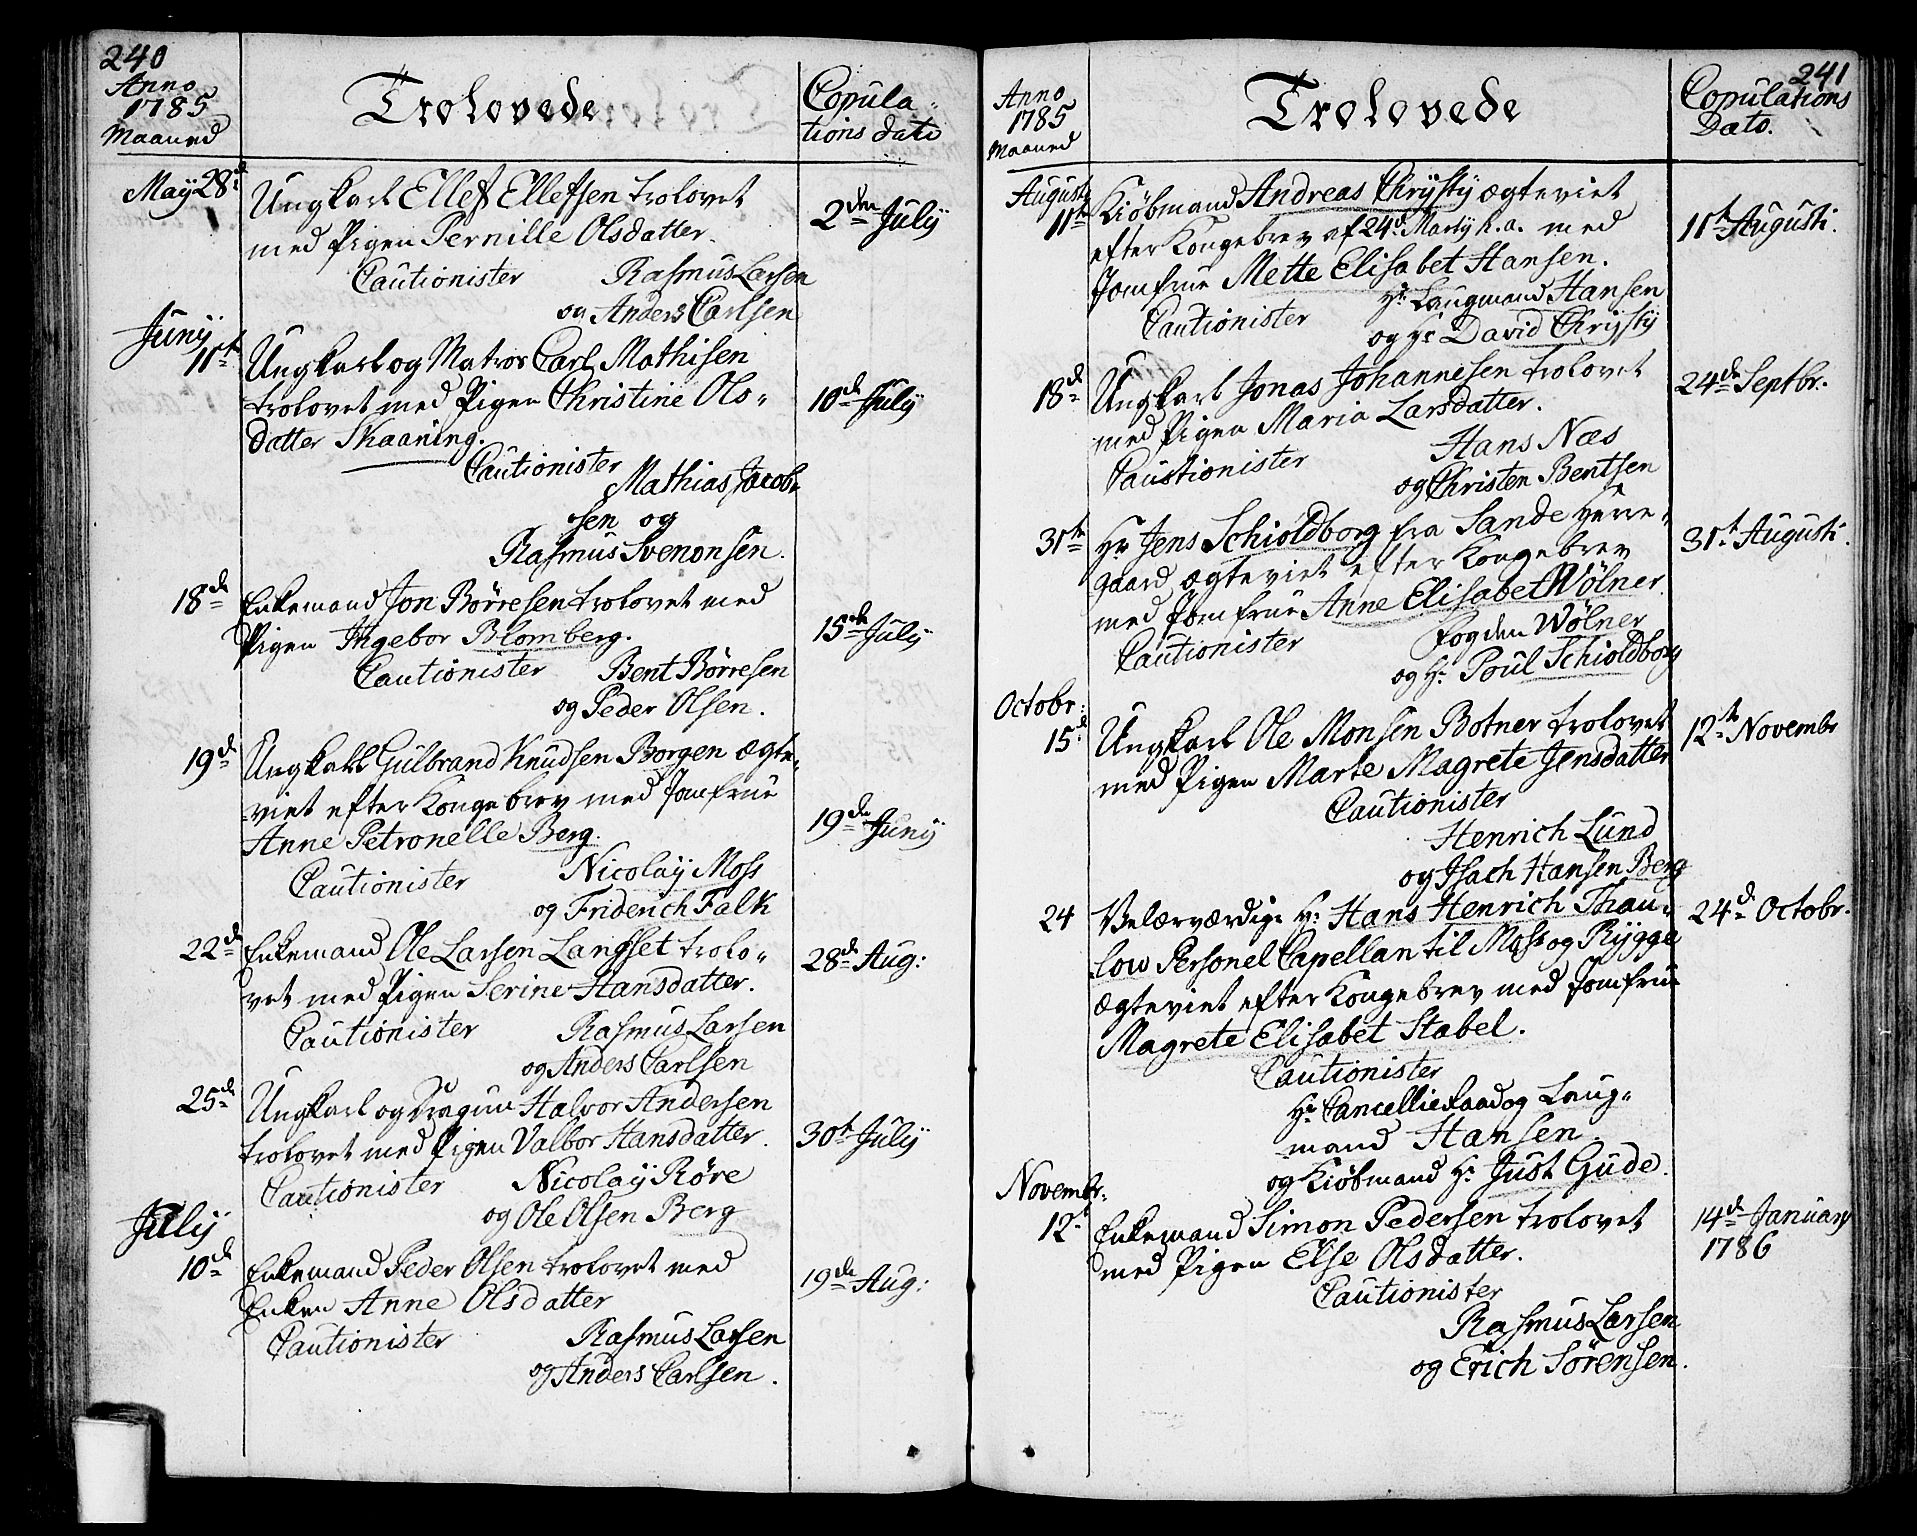 240
Anno
1785
Maaned
Trolovede
Copula-
tions dato
May 28de
Ungkarl Ellef Ellefsen trolovet
med Pigen Pernille Olsdatter.
2den July
Cautionister Rasmus Larsen
og Anders Carlsen
Juny
11te
Ungkarl og Matros Carl Mathisen
trolovet med Pigen Christine Ols-
10de July
datter Skaaning.
Cautionister
Mathias Jacob-
sen og
Rasmus Svenonsen.
18de
Enkemand Jon Börresen trolovet med
Pigen Ingebor Blomberg.
15de July
Cautionister Bent Börresen
og Peder Olsen.
19de
Ungkarl Gulbrand Knudsen Borgen ægte-
viet efter Kongebrev med Jomfrue
19de Juny
Anne Petronelle Berg.
Cautionister Nicolay Moss
og Friderich Falk
22de
Enkemand Ole Larsen Langset trolo-
28de Aug:
vet med Pigen Serine Hansdatter.
Cautionister Rasmus Larsen
og Anders Carlsen
25de
Ungkarl og Dragun Halvor Andersen
trolovet med Pigen Valbor Hansdatter.
30te July
Cautionister Nicolay Röre
og Ole Olsen Berg
July
10de
Enkemand Peder Olsen trolovet med
19de Aug:
Enken Anne Olsdatter
Cautionister Rasmus Larsen
og Anders Carlsen.
241
Anno
1785
Maaned
Trolovede
Copulations
Dato.
Augusty
11te
Kiöbmand Andreas Chrysty ægteviet
efter Kongebrev af 24de Marty h.a. med
11te Augusti.
Jomfrue Mette Elisabet Hansen.
Cautionister Hr. Laugmand Hansen
og Hr David Chrysty
18de
Ungkarl Jonas Johannesen trolovet
24de Septbr.
med Pigen Maria Larsdatter.
Cautionister Hans Næs
og Christen Bentsen
31te
Hr Jens Schioldborg fra Sande Herre-
31te Augusti.
gaard ægteviet efter Kongebrev
med Jomfrue Anne Elisabet Wölner.
Cautionister Fogden Wölner
og Hr. Poul Schioldborg
Octobr:
15de
Ungkarl Ole Monsen Botner trolovet
12te Novembr
med Pigen Marte Magrete Jensdatter
Cautionister
Henrich Lund
og Isach Hansen Berg
24
Velærværdige Hr: Hans Henrich Thau-
24de Octobr.
low Personel Capellan til Moss og Rygge
ægteviet efter Kongebrev med Jomfrue
Magrete Elisabet Stabel.
Cautionister
Hr Cancellieraad og Laug-
mand Hansen
og Kiöbmand Hr. Just Gude.
Novembr:
12te
Enkemand Simon Pedersen trolovet
14de January
1786
med Pigen Else Olsdatter.
Cautionister
Rasmus Larsen
og Erich Sörensen.